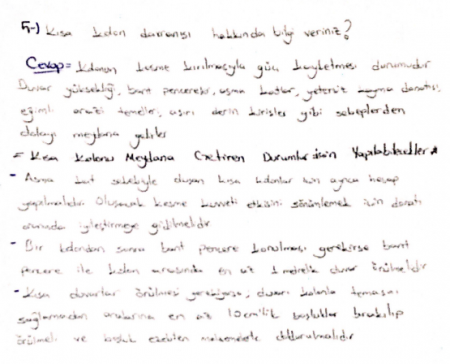 5-) Kısa kolon davranışı hakkında bilgi veriniz?
Cevap = Kolonun kesme kırılmasıyla güç kaybetmesi durumudur
Duvar yüksekliği, bant pencereler, asma katlar, yetersiz donatısı,
eğimli arazi temeller, aşırı derin kirişler gibi sebeplerden
dolayı meydana gelirler
= Kısa Kolonu Meydana Getiren Durumlar için Yapılabilecekler
- Asma kat sebebiyle oluşan kısa kolonlar için ayrıca hesap
yapılmalıdır. Oluşacak kesme kuvveti etkisini sönümlemek için donatı
iyileştirmeye gidilmelidir
- Bir kolondan sonra bant pencere konulması gerekirse bant
pencere ile kolon arasında en az 1 metrelik duvar örülmelidir
- Kısa duvarlar örülmesi gerekiyorsa, duvarı kolonla teması
sağlanmadan aralarına en az 10 cm'lik boşluklar bırakılıp
örülmeli ve boşluk malzemelerle doldurulmalıdır